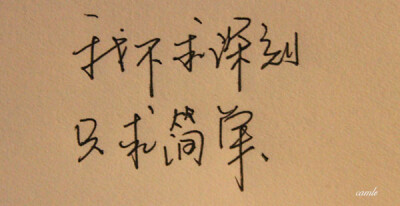 我不求深刻
只求简单、
camile